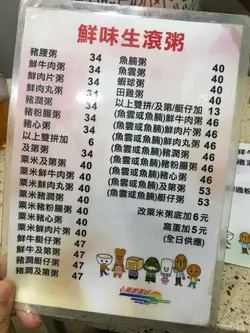 鮮味生滾粥
豬腰粥 34
鮮牛肉粥 34
鮮肉片粥 34
鮮肉丸粥 34
豬潤粥 34
豬粉腸粥 34
豬心粥 34
以上雙拼加 6
及第粥 34
粟米及第粥 40
粟米鮮牛肉粥 40
粟米鮮肉丸粥 40
粟米豬潤粥 40
粟米豬粉腸粥 40
粟米豬心粥 40
粟米鮮肉片粥 40
鮮牛艇仔粥 47
鮮牛及第粥 47
豬潤艇仔粥 47
豬潤及第粥 47
魚腩粥 40
魚雲粥 40
蝦球粥 40
田雞粥 40
以上雙拼/及第/艇仔加 13
(魚雲或魚腩)鮮牛肉粥 46
(魚雲或魚腩)鮮肉片粥 46
(魚雲或魚腩)鮮肉丸粥 46
(魚雲或魚腩)豬潤粥 46
(魚雲或魚腩)豬粉腸粥 46
(魚雲或魚腩)豬心粥 46
(魚雲或魚腩)及第粥 53
(魚雲或魚腩)艇仔粥 53
改粟米粥底加 6 元
窩蛋加 5 元
(全日供應)